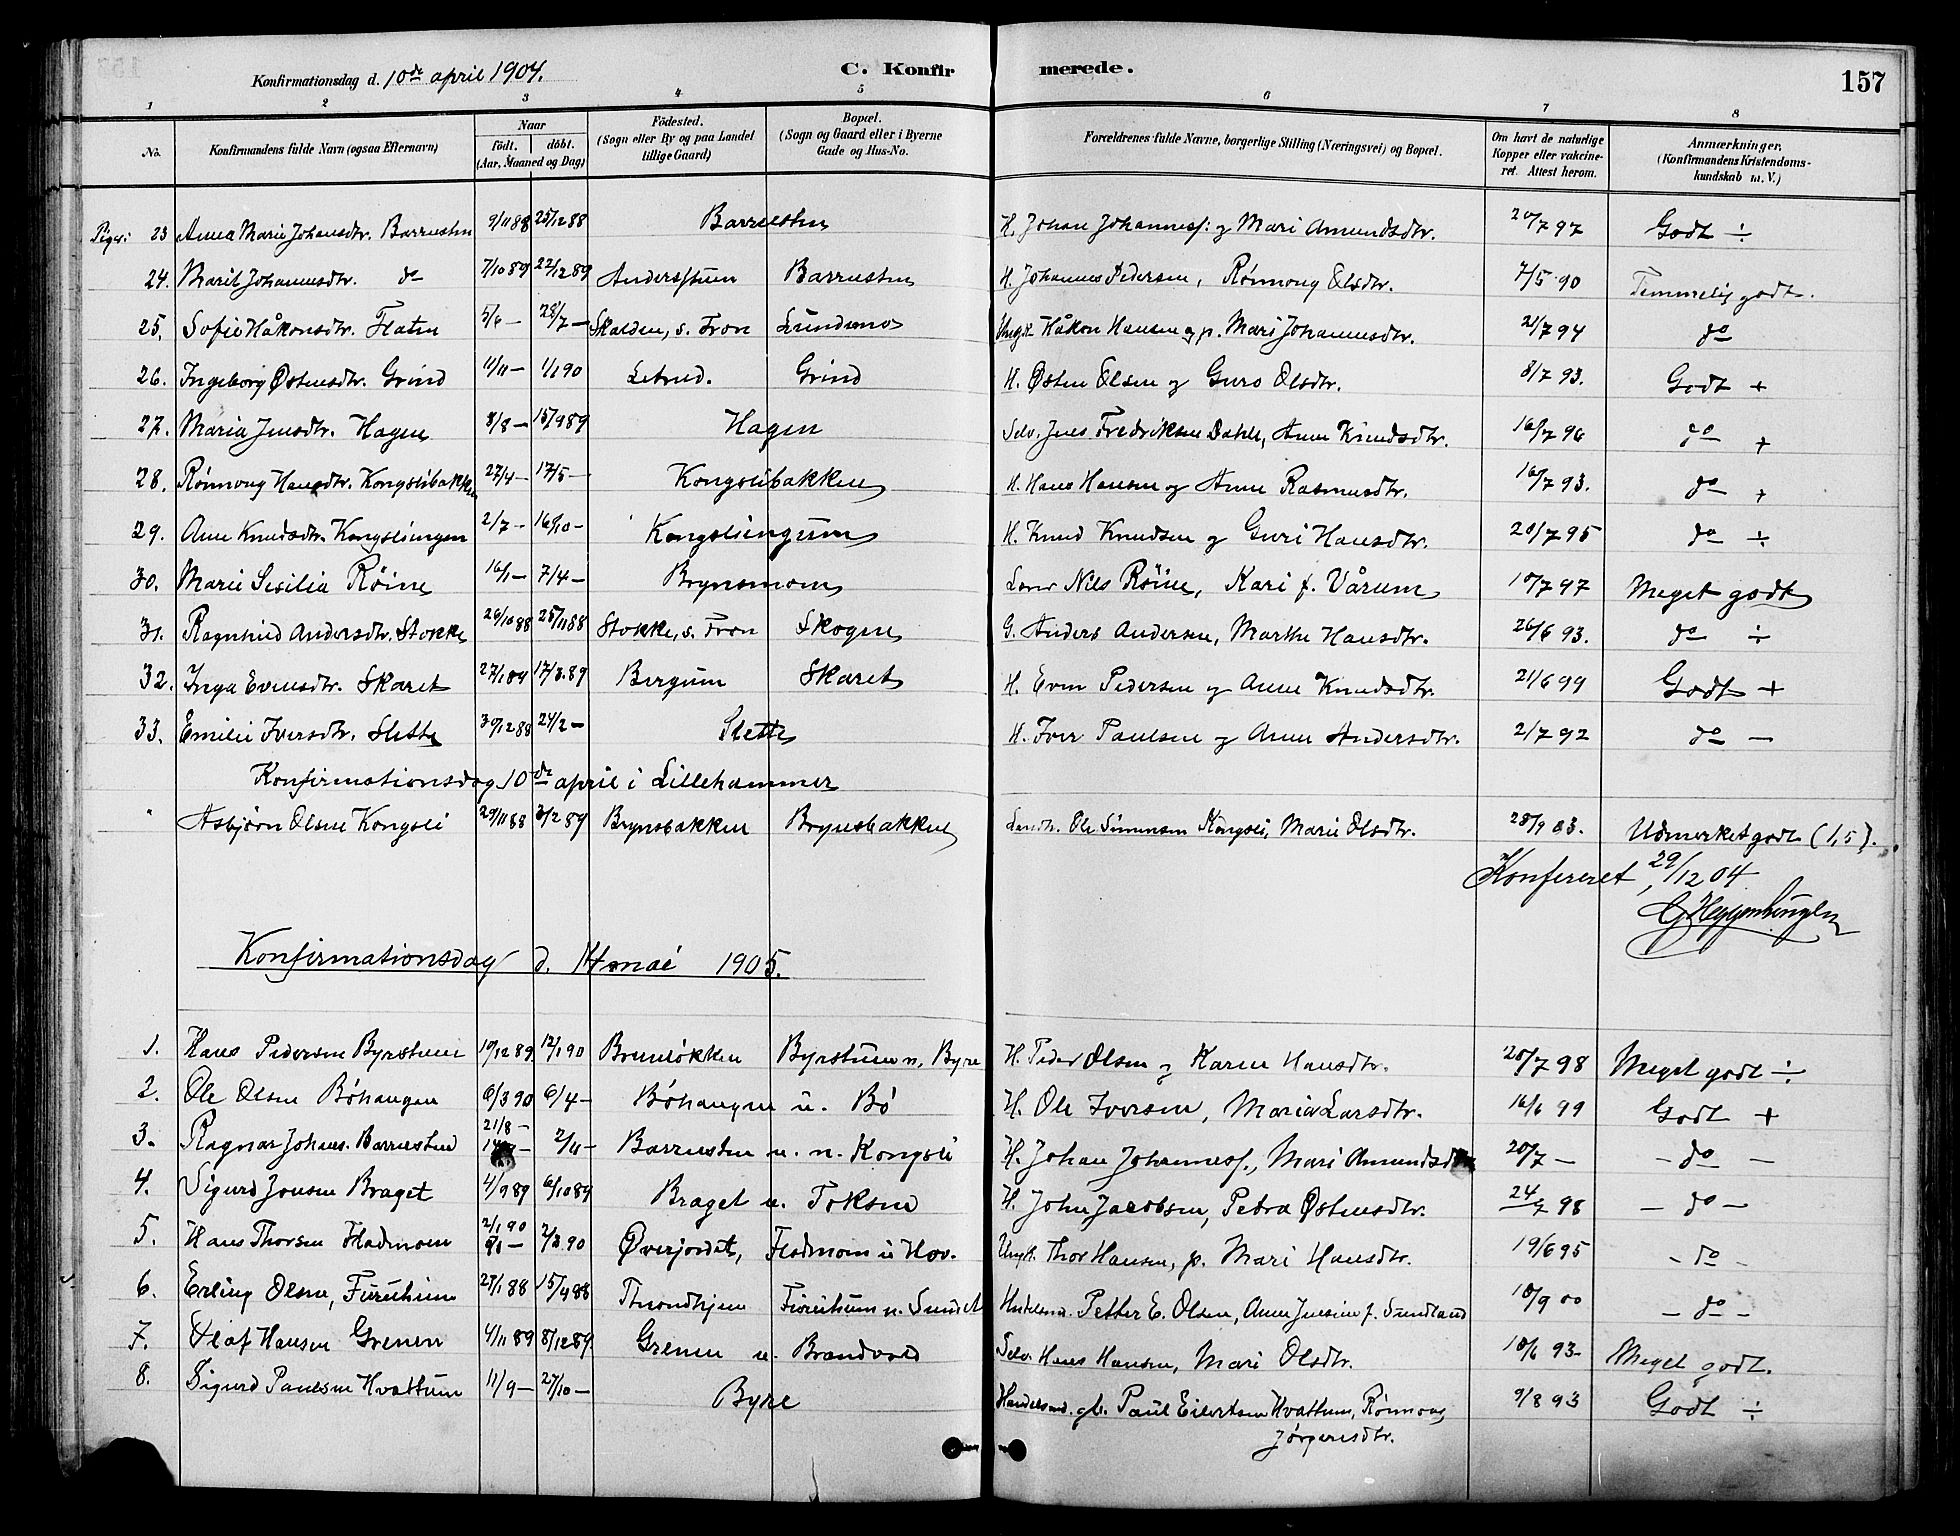 Konfirmationsdag d. 10de april 1904. C. Konfirmerede. 157
1 2 3 4 5 6 7 8
No. Konfirmandens fulde Navn (ogsaa Efternavn) Naar födt. döbt. (Aar, Maaned og Dag) Födested. (Sogn eller By og paa Landet tillige Gaard) Bopæl. (Sogn og Gaard eller i Byerne Gade og Hus-No. Forældrenes fulde Navne, borgerlige Stilling (Næringsvei) og Bopæl. Om havt de naturlige Kopper eller vakcineret. Attest herom. Anmærkninger. (Konfirmandens Kristendomskundskab m. V.)
Piger: 23 Anna Marie Johansdtr. Barrusten 9/11 88 25/12 88 Barrusten H. Johan Johanness: og Mari Amundsdtr. 20/7 97 Godt ÷
24. Marit Johannesdtr. do 7/10 89 22/12 89 Andersstuen Barrusten H. Johannes Pedersen, Rønnoug Olsdtr. 7/5 90 Temmelig godt.
25. Sofie Håkonsdtr. Flaten 5/6 — 28/7 — Skalden, s. Fron Sundmo Ungk. Håkon Hansen og p. Mari Johannesdtr. 21/7 94 do
26. Ingeborg Østensdtr. Grind 11/11 — 1/1 90 Letrud. Grind H. Østen Olsen og Guro Olsdtr. 8/7 93. Godt +
27. Maria Jensdtr. Hagen 8/8 — 15/9 89 Hagen Selv. Jens Fredriksen Dahle, Anne Knudsdtr. 16/7 96 do +
28. Rønnoug Hansdtr. Kongslibakken 27/4 — 17/5 — Kongslibakken H. Hans Hansen og Anne Rasmusdtr. 16/7 93. do +
29. Anne Knudsdtr. Kongsliengen 2/7 — 16/10 — Kongsliengum H. Knud Knudsen og Guri Hansdtr. 20/7 95 do ÷
30. Marie Sesilia Røine 16/1 — 7/4 — Brynsmoen Nils Røine, Kari f. Vårum 10/7 97 Meget godt
31. Ragnhild Andersdtr. Stokke 26/10 88 25/11 88 Stokke, s. Fron Skogen G. Anders Andersen, Marthe Hansdtr. 26/6 93. do ÷
32. Inga Evensdtr. Skaret 27/1 89 17/3 89 Bergum Skaret H. Even Pedersen og Anne Knudsdtr. 21/6 99 Godt +
33. Emilie Iversdtr. Slette 30/12 88 24/2 — Slette H. Iver Paulsen og Anne Andersdtr. 2/7 92 do —
Konfirmationsdag 10de april i Lillehammer
" Asbjørn Olsen Kongsli 29/11 88 3/2 89 Brynsbakken Brynsbakken Landh. Ole Simensen Kongsli, Marie Olsdtr. 28/9 83. Udmerket godt (1,5).
Konfereret 29/12 04
Konfirmationsdag d. 14 mai 1905.
1. Hans Pedersen Byrstuen 19/12 89 12/1 90 Brenløkken Byrstuen u. Byre H. Peder Olsen og Karen Hansdtr. 20/7 98 Meget godt ÷
2. Ole Olsen Bøhaugen 6/3 90 6/4 — Bøhaugen u. Bø H. Ole Iversen, Maria Larsdtr. 16/6 99 Godt +
3. Ragnar Johans. Barrusten 21/8 — 2/11 — Barrusten u. n. Kongsli H. Johan Johanness., Mari Amundsdtr 20/7 — - do —
4. Sigurd Jonsen Braget 4/9 89 6/10 89 Braget u. Toksen H. John Jacobsen, Petra Østensdtr. 24/7 98 — do —
5. Hans Thorsen Fladmoen 2/1 90 2/3 90 Øverjordet, Fladmoen u Hov. Ungk. Thor Hansen, p. Mari Hansdtr. 19/6 95 - do -
6. Erling Olsen, Furuheim 27/1 88 15/4 88 Throndhjem Furuheim u. Sundet Petter E. Olsen, Anne Jensine f. Sundland 10/9 00 — do -
7. Olaf Hansen Grenen 4/11 89 8/12 89. Grenen u. Brandvold Selv. Hans Hansen, Mari Olsdtr. 10/6 93- Meget godt.
8. Sigurd Paulsen Hvattum 11/9 — 27/10 — Byre Handelsmd. gb. Paul Eilertsen Hvattum, Rønnoug 9/8 93 Godt ÷
Jørgensdtr.